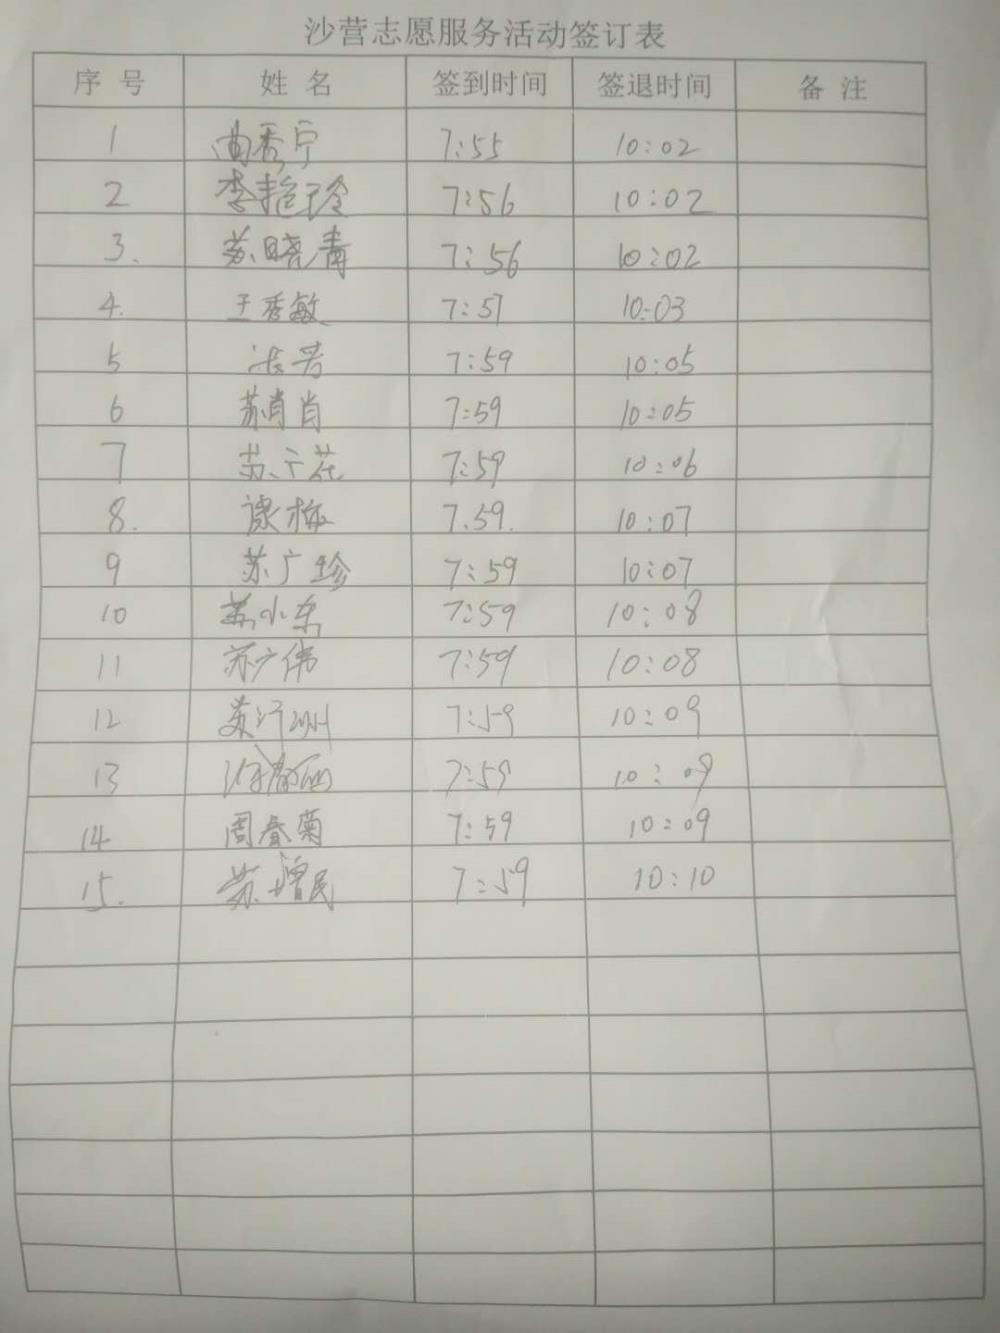 沙营志愿服务活动签订表
序号 姓名 签到时间 签退时间 备注
1 曲秀宁 7:55 10:02
2 李艳玲 7:56 10:02
3. 苏晓青 7:56 10:02
4. 王秀敏 7:57 10:03
5 7:59 10:05
6 苏肖肖 7:59 10:05
7 苏广花 7:59 10:06
8. 梅 7.59. 10:07
9 苏广珍 7:59 10:07
10 苏小东 7:59 10:08
11 苏广伟 7:59 10:08
12 苏 7:59 10:09
13 7:59 10:09
14 周春菊 7:59 10:09
15. 苏增民 7:59 10:10